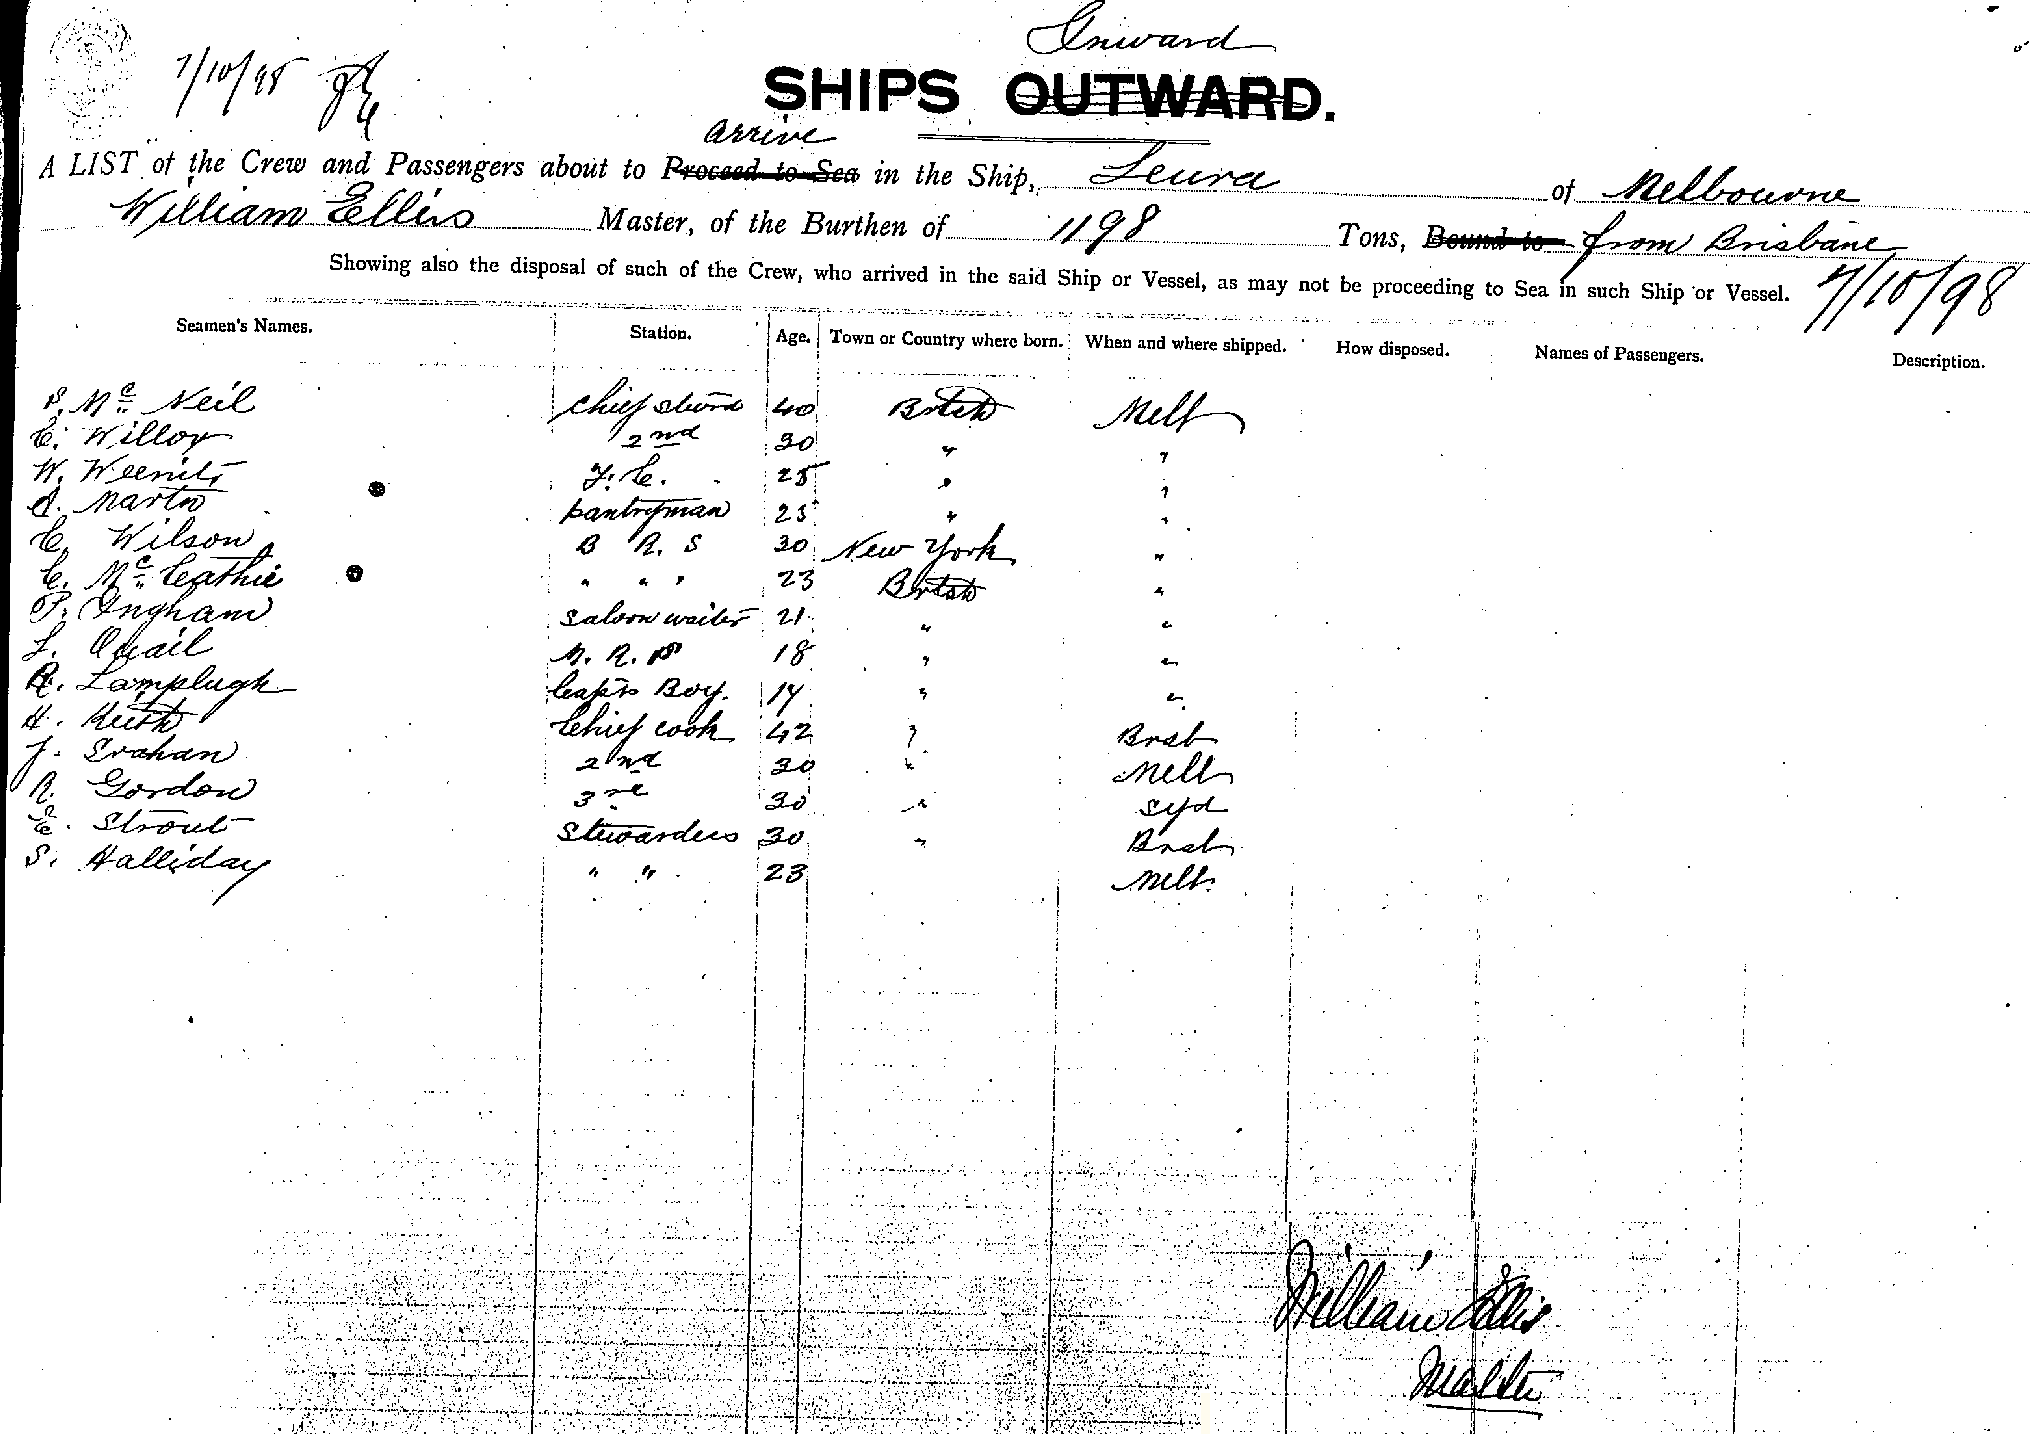 Inward
7/10/98
SHIPS OUTWARD.
arrive
A LIST of the Crew and Passengers about to Proceed to Sea in the Ship, Leura of Melbourne
William Ellis Master, of the Burthen of 1198 Tons, Bound to from Brisbane
Showing also the disposal of such of the Crew, who arrived in the said Ship or Vessel, as may not be proceeding to Sea in such Ship or Vessel. 7/10/98
Seamen's Names. Station. Age. Town or Country where born. When and where shipped. How disposed. Names of Passengers. Description.
S. Mc Neil Chief stwrd 40 British Melb
E. Willox 2nd 30 " "
W. 25 " "
A. Martin pantryman 25 " "
C. Wilson B R. S 30 New York "
C. Mc Cathie " " " 23 British "
P. Ingham Saloon waiter 21 " "
L. Quail M. R. S 18 " "
R. Lamplugh Capts Boy. 14 " "
H. Keith Chief cook 42 " Brsb
J. Srahan 2nd 30 " Melb
R. Gordon 3rd 30 " Syd
E. Strout Stewardess 30 " Brsb
S. Halliday " " 23 Melb.
William Ellis
Master